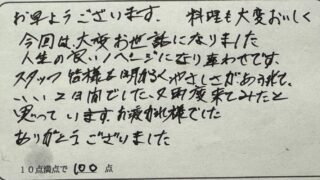 お早ようございます. 料理も大変おいしく
今回は、大変お世話になりました
人生の良い1ページになり幸わせです.
スタッフ皆様も明かるくやさしさがあふれて、
いい2日間でした.又再度来てみたと
思っています.お疲れ様でした
ありがとうございました
10点満点で 100 点